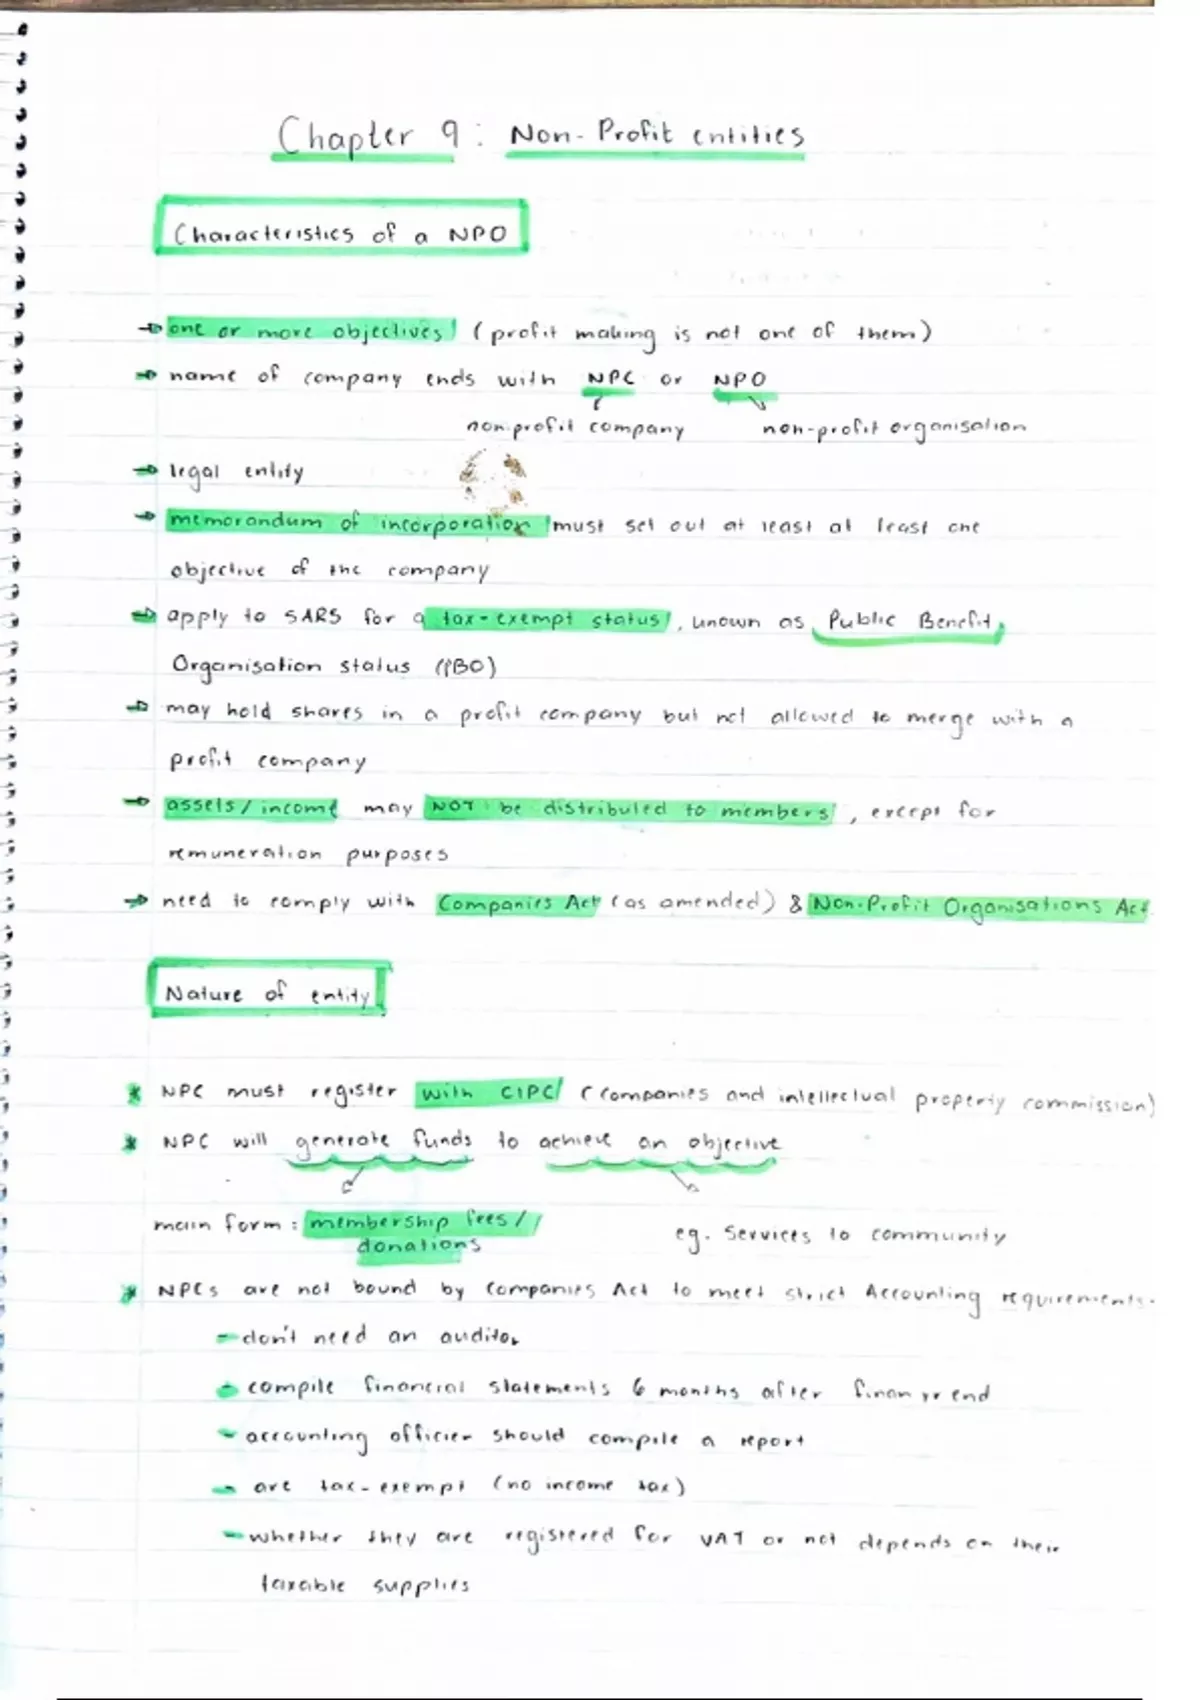 Chapter 9: Non-Profit entities
Characteristics of a NPO
one or more objectives (profit making is not one of them)
name of company ends with NPC or NPO
non-profit company non-profit organisation
legal entity
memorandum of incorporation must set out at least at least one
objective of the company
apply to SARS for a tax-exempt status, known as Public Benefit
Organisation status (PBO)
may hold shares in a profit company but not allowed to merge with a
profit company
assets/income may NOT be distributed to members, except for
remuneration purposes
need to comply with Companies Act (as amended) & Non-Profit Organisations Act
Nature of entity
* NPC must register with CIPC (companies and intellectual property commission)
* NPC will generate funds to achieve an objective
main form: membership fees/ eg. Services to community
donations
* NPCs are not bound by Companies Act to meet strict Accounting requirements.
- don't need an auditor
- compile financial statements 6 months after finan yr end
- accounting officier should compile a report
- are tax-exempt (no income tax)
- whether they are registered for VAT or not depends on their
taxable supplies